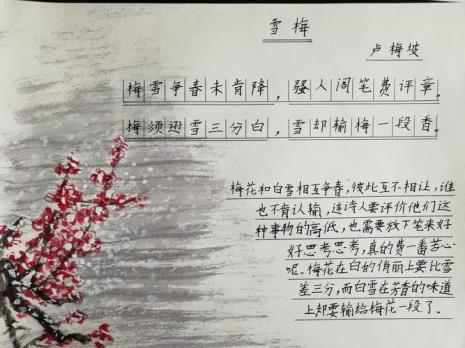 雪梅
卢梅坡
梅雪争春未肯降，骚人阁笔费评章。
梅须逊雪三分白，雪却输梅一段香。
梅花和白雪相互争春，彼此互不相让，谁
也不肯认输，连诗人要评价他们这
种事物的高低，也需要放下笔来好
好思考思考，真的费一番苦心
呢。梅花在白的俏丽上要比雪
差三分，而白雪在芳香的味道
上却要输给梅花一段了。